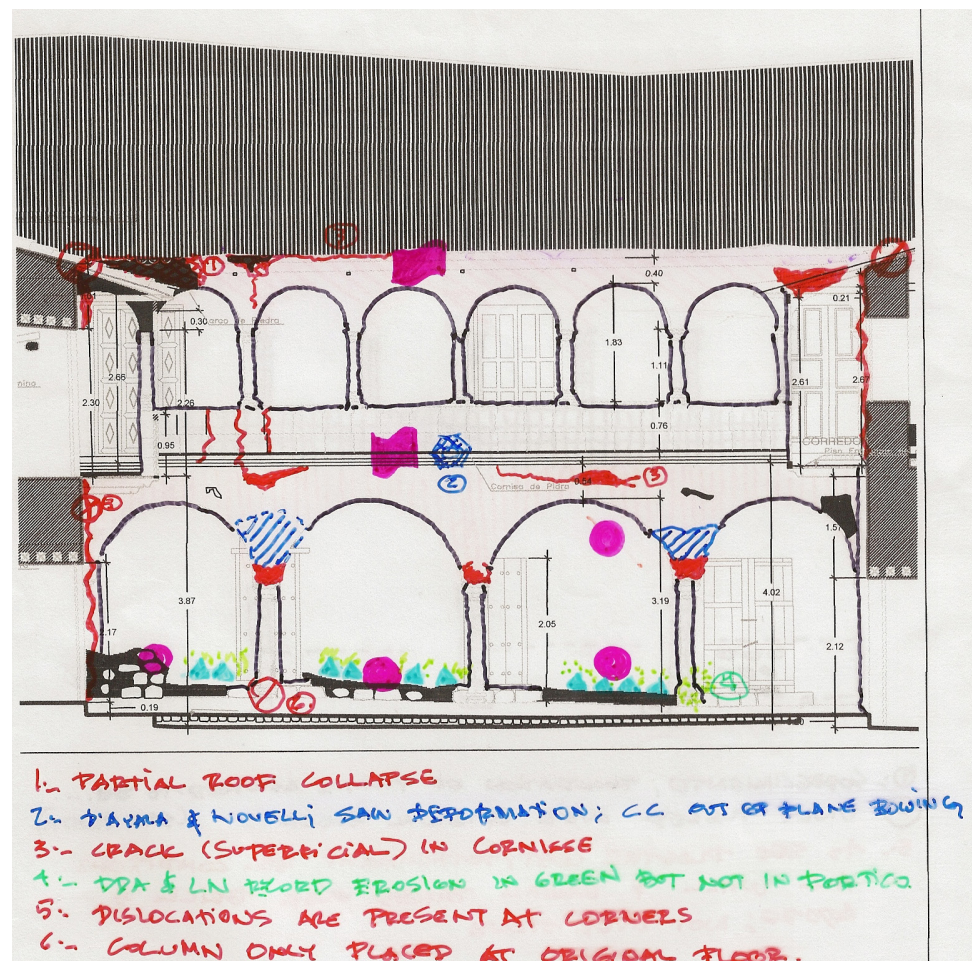 0.40
0.21
0.30
Arco de Piedra
1.83
1.11
2.66
2.61
2.67
2.30
2.26
0.76
0.95
CORREDO
2
Cornisa de Piedra
0.54
3
1.57
3.87
3.19
4.02
2.05
2.17
2.12
4
6.
0.19
1.- PARTIAL ROOF COLLAPSE
2.- D'AYALA & NOVELLI SAW DEFORMATION; CC OUT OF PLANE BOWING
3.- CRACK (SUPERFICIAL) IN CORNISSE
4.- DDA & LN RECORD EROSION IN GREEN BUT NOT IN PORTICO.
5.- DISLOCATIONS ARE PRESENT AT CORNERS
6.- COLUMN ONLY PLACED AT ORIGINAL FLOOR.